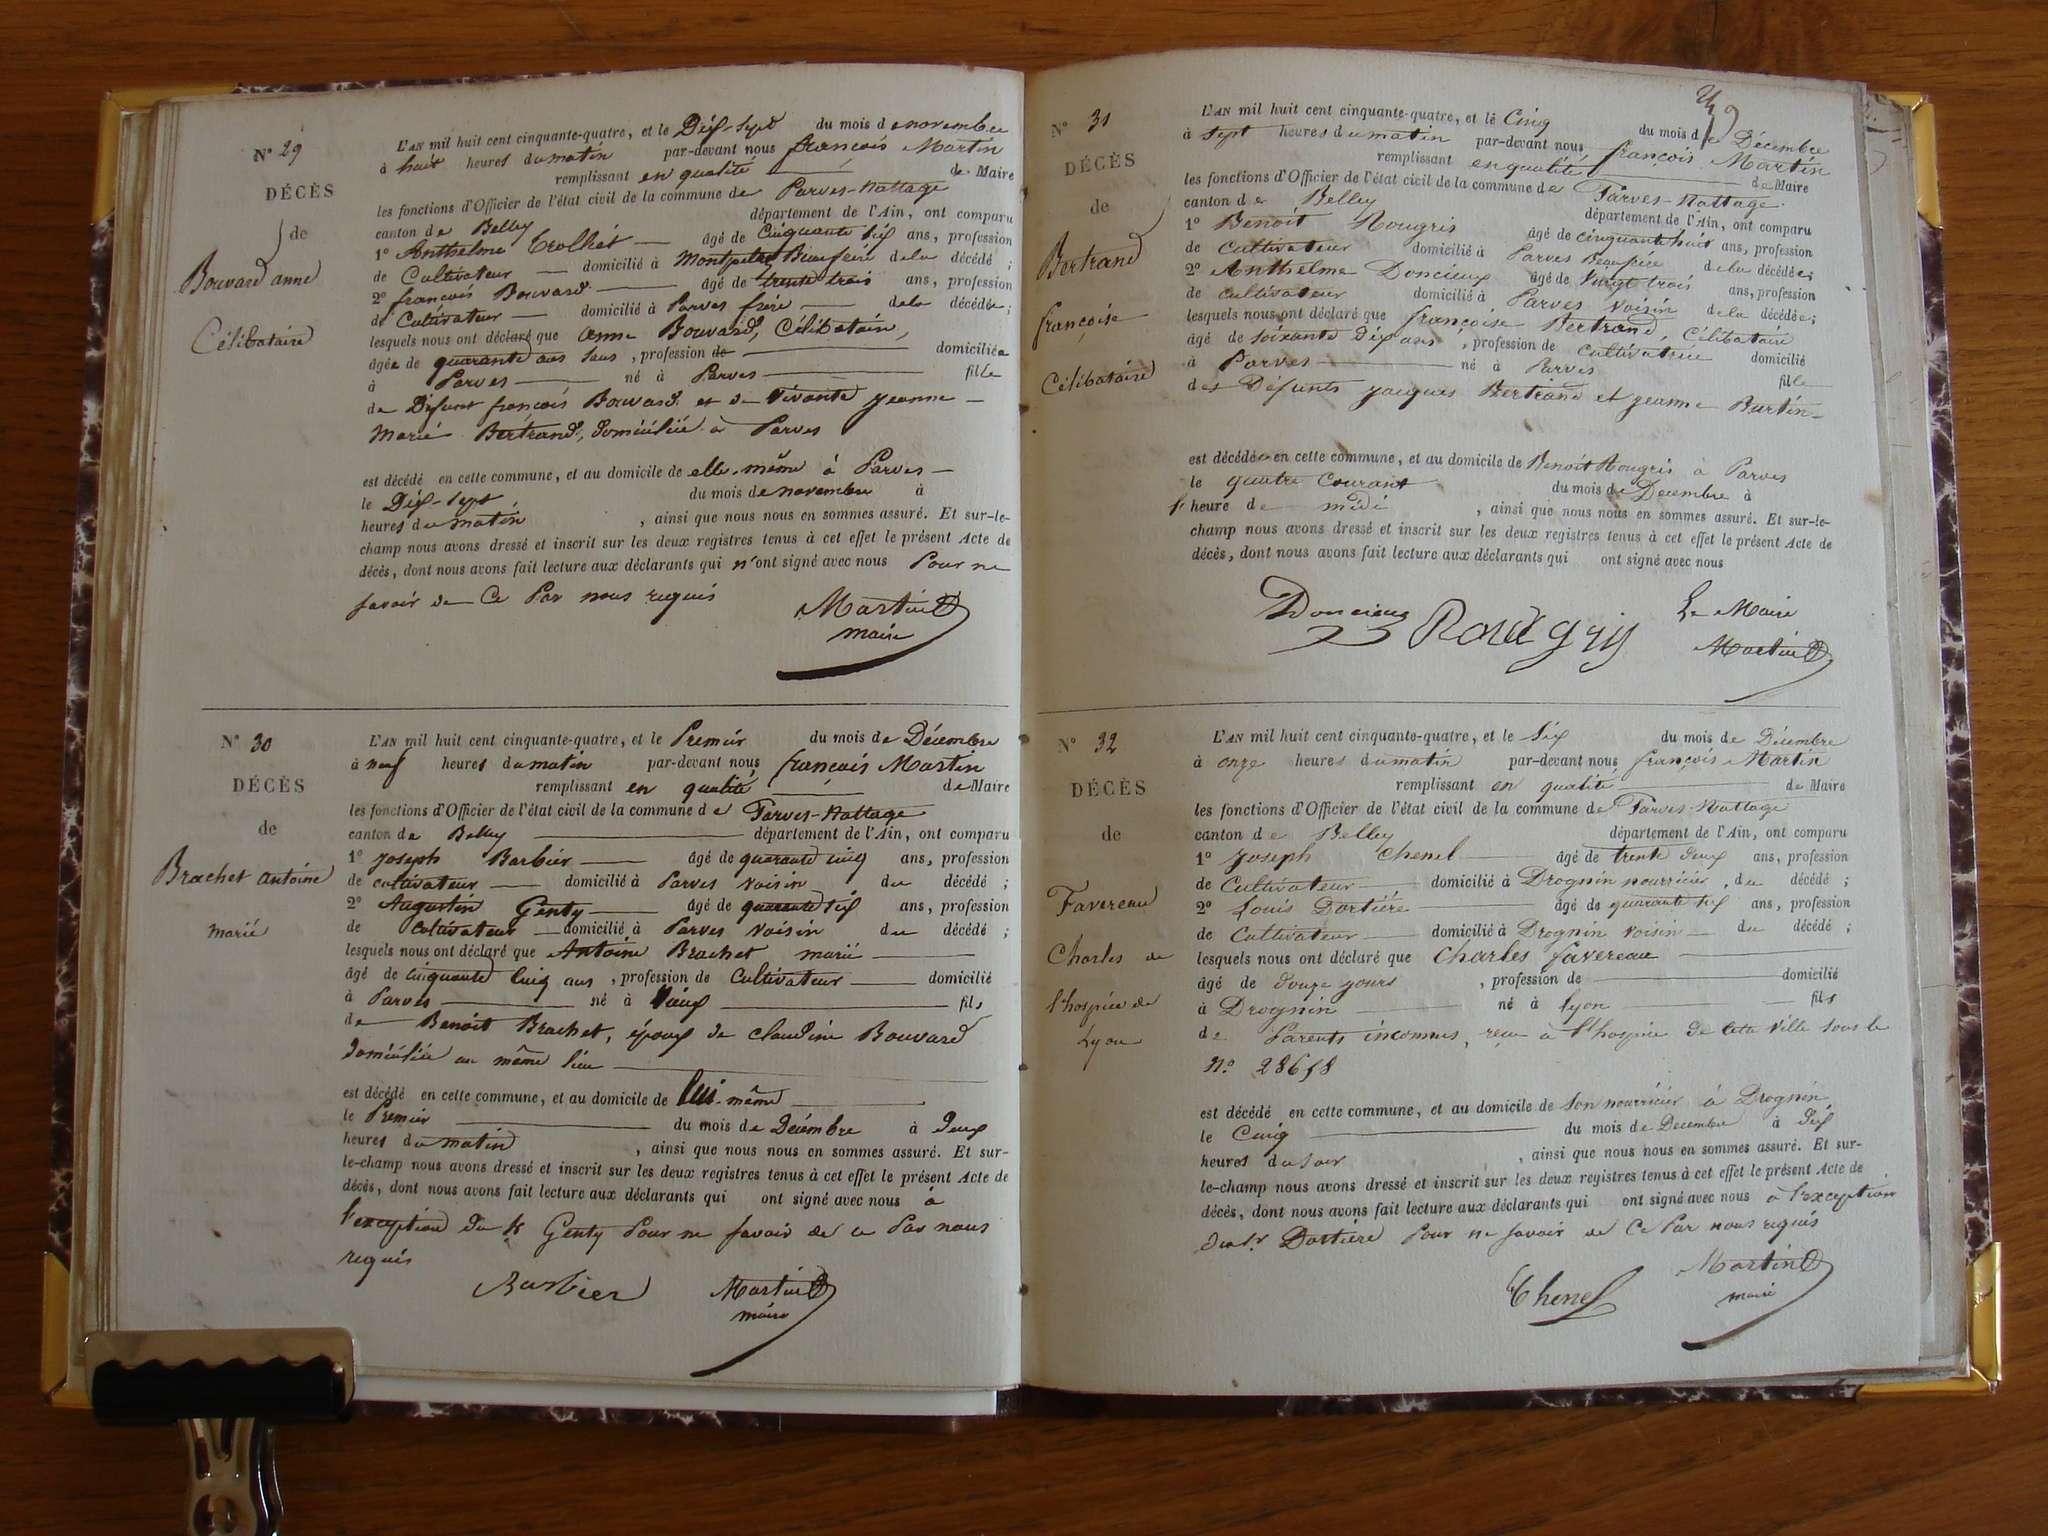 N° 29
DÉCÈS
de
Bouvard anne
Célibataire
L'AN mil huit cent cinquante-quatre, et le Dix-sept du mois de novembre
à huit heures du matin par-devant nous françois Martin
remplissant en qualité de Maire
les fonctions d'Officier de l'état civil de la commune de Parves-Nattage
canton de Belley département de l'Ain, ont comparu
1° Anthelme âgé de Cinquante six ans, profession
de Cultivateur domicilié à Beaufrère de la décédé ;
2° françois Bouvard âgé de trente trois ans, profession
de Cultivateur domicilié à Parves frère de la décédée ;
lesquels nous ont déclaré que anne Bouvard, Célibataire,
âgée de quarante ans sans , profession de domiciliée
à Parves né à Parves fille
de Défunt françois Bouvard et de vivante jeanne
Marie Bertrand, domiciliée à Parves
est décédé en cette commune, et au domicile de elle-même à Parves
le Dix-sept du mois de novembre à
heures du matin , ainsi que nous nous en sommes assuré. Et sur-le-
champ nous avons dressé et inscrit sur les deux registres tenus à cet effet le présent Acte de
décès, dont nous avons fait lecture aux déclarants qui n'ont signé avec nous Pour ne
savoir de Ce Par nous requis
Martin
maire
N° 30
DÉCÈS
de
Brachet antoine
marié
L'AN mil huit cent cinquante-quatre, et le Premier du mois de Décembre
à neuf heures du matin par-devant nous françois Martin
remplissant en qualité de Maire
les fonctions d'Officier de l'état civil de la commune de Parves-Nattage
canton de Belley département de l'Ain, ont comparu
1° joseph Barbier âgé de quarante cinq ans, profession
de cultivateur domicilié à Parves voisin du décédé ;
2° Augustin Genty âgé de quarante six ans, profession
de cultivateur domicilié à Parves voisin du décédé ;
lesquels nous ont déclaré que Antoine Brachet marié
âgé de cinquante cinq ans , profession de Cultivateur domicilié
à Parves né à fils
de Benoit Brachet, époux de claudine Bouvard
domiciliée au même lieu
est décédé en cette commune, et au domicile de lui-même
le Premier du mois de Décembre à deux
heures du matin , ainsi que nous nous en sommes assuré. Et sur-
le-champ nous avons dressé et inscrit sur les deux registres tenus à cet effet le présent Acte de
décès, dont nous avons fait lecture aux déclarants qui ont signé avec nous à
l'exception du Sr Genty Pour ne savoir de ce Par nous
requis
Barbier Martin
maire
N° 31
DÉCÈS
de
Bertrand
françoise
Célibataire
L'AN mil huit cent cinquante-quatre, et le Cinq du mois de Décembre
à sept heures du matin par-devant nous françois Martin
remplissant en qualité de Maire
les fonctions d'Officier de l'état civil de la commune de Parves-Nattage
canton de Belley département de l'Ain, ont comparu
1° Benoit Rougris âgé de cinquante huit ans, profession
de cultivateur domicilié à Parves Beaufrère de la décédée ;
2° Anthelme Doncieux âgé de vingt trois ans, profession
de cultivateur domicilié à Parves voisin de la décédée ;
lesquels nous ont déclaré que françoise Bertrand, Célibataire
âgé de soixante Dix ans , profession de cultivatrice domicilié
à Parves né à Parves fille
des Défunts jacques Bertrand et jeanne Burtin
est décédée en cette commune, et au domicile de Benoit Rougris à Parves
le quatre courant du mois de Décembre à
l' heure de midi , ainsi que nous nous en sommes assuré. Et sur-le-
champ nous avons dressé et inscrit sur les deux registres tenus à cet effet le présent Acte de
décès, dont nous avons fait lecture aux déclarants qui ont signé avec nous
Doncieux Rougris Le Maire
Martin
N° 32
DÉCÈS
de
Favereau
Charles de
l'hospice de
Lyon
L'AN mil huit cent cinquante-quatre, et le Six du mois de Décembre
à onze heures du matin par-devant nous françois Martin
remplissant en qualité de Maire
les fonctions d'Officier de l'état civil de la commune de Parves-Nattage
canton de Belley département de l'Ain, ont comparu
1° joseph Chenel âgé de trente deux ans, profession
de Cultivateur domicilié à Drognin nourricier, du décédé ;
2° Louis Dortière âgé de quarante six ans, profession
de Cultivateur domicilié à Drognin voisin du décédé ;
lesquels nous ont déclaré que Charles favereau
âgé de douze jours , profession de domicilié
à Drognin né à lyon fils
de Parents inconnus, reçu à l'hospice de cette ville sous le
n° 28658
est décédé en cette commune, et au domicile de son nourricier à Drognin
le Cinq du mois de Décembre à dix
heures du soir , ainsi que nous nous en sommes assuré. Et sur-
le-champ nous avons dressé et inscrit sur les deux registres tenus à cet effet le présent Acte de
décès, dont nous avons fait lecture aux déclarants qui ont signé avec nous à l'exception
du sr Dortière Pour ne savoir de Ce Par nous requis
Chenel Martin
maire